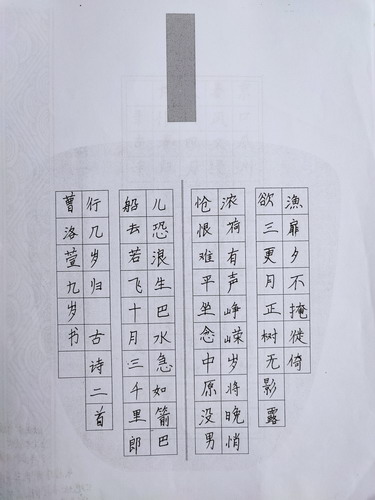 漁扉夕不掩徙倚
欲三更月正树无影露
浓荷有声峥嵘岁将晚悄
怆恨难平坐念中原没男
儿恐浪生巴水急如箭巴
船去若飞十月三千里郎
行几岁归 古诗二首
曹洛萱九岁书